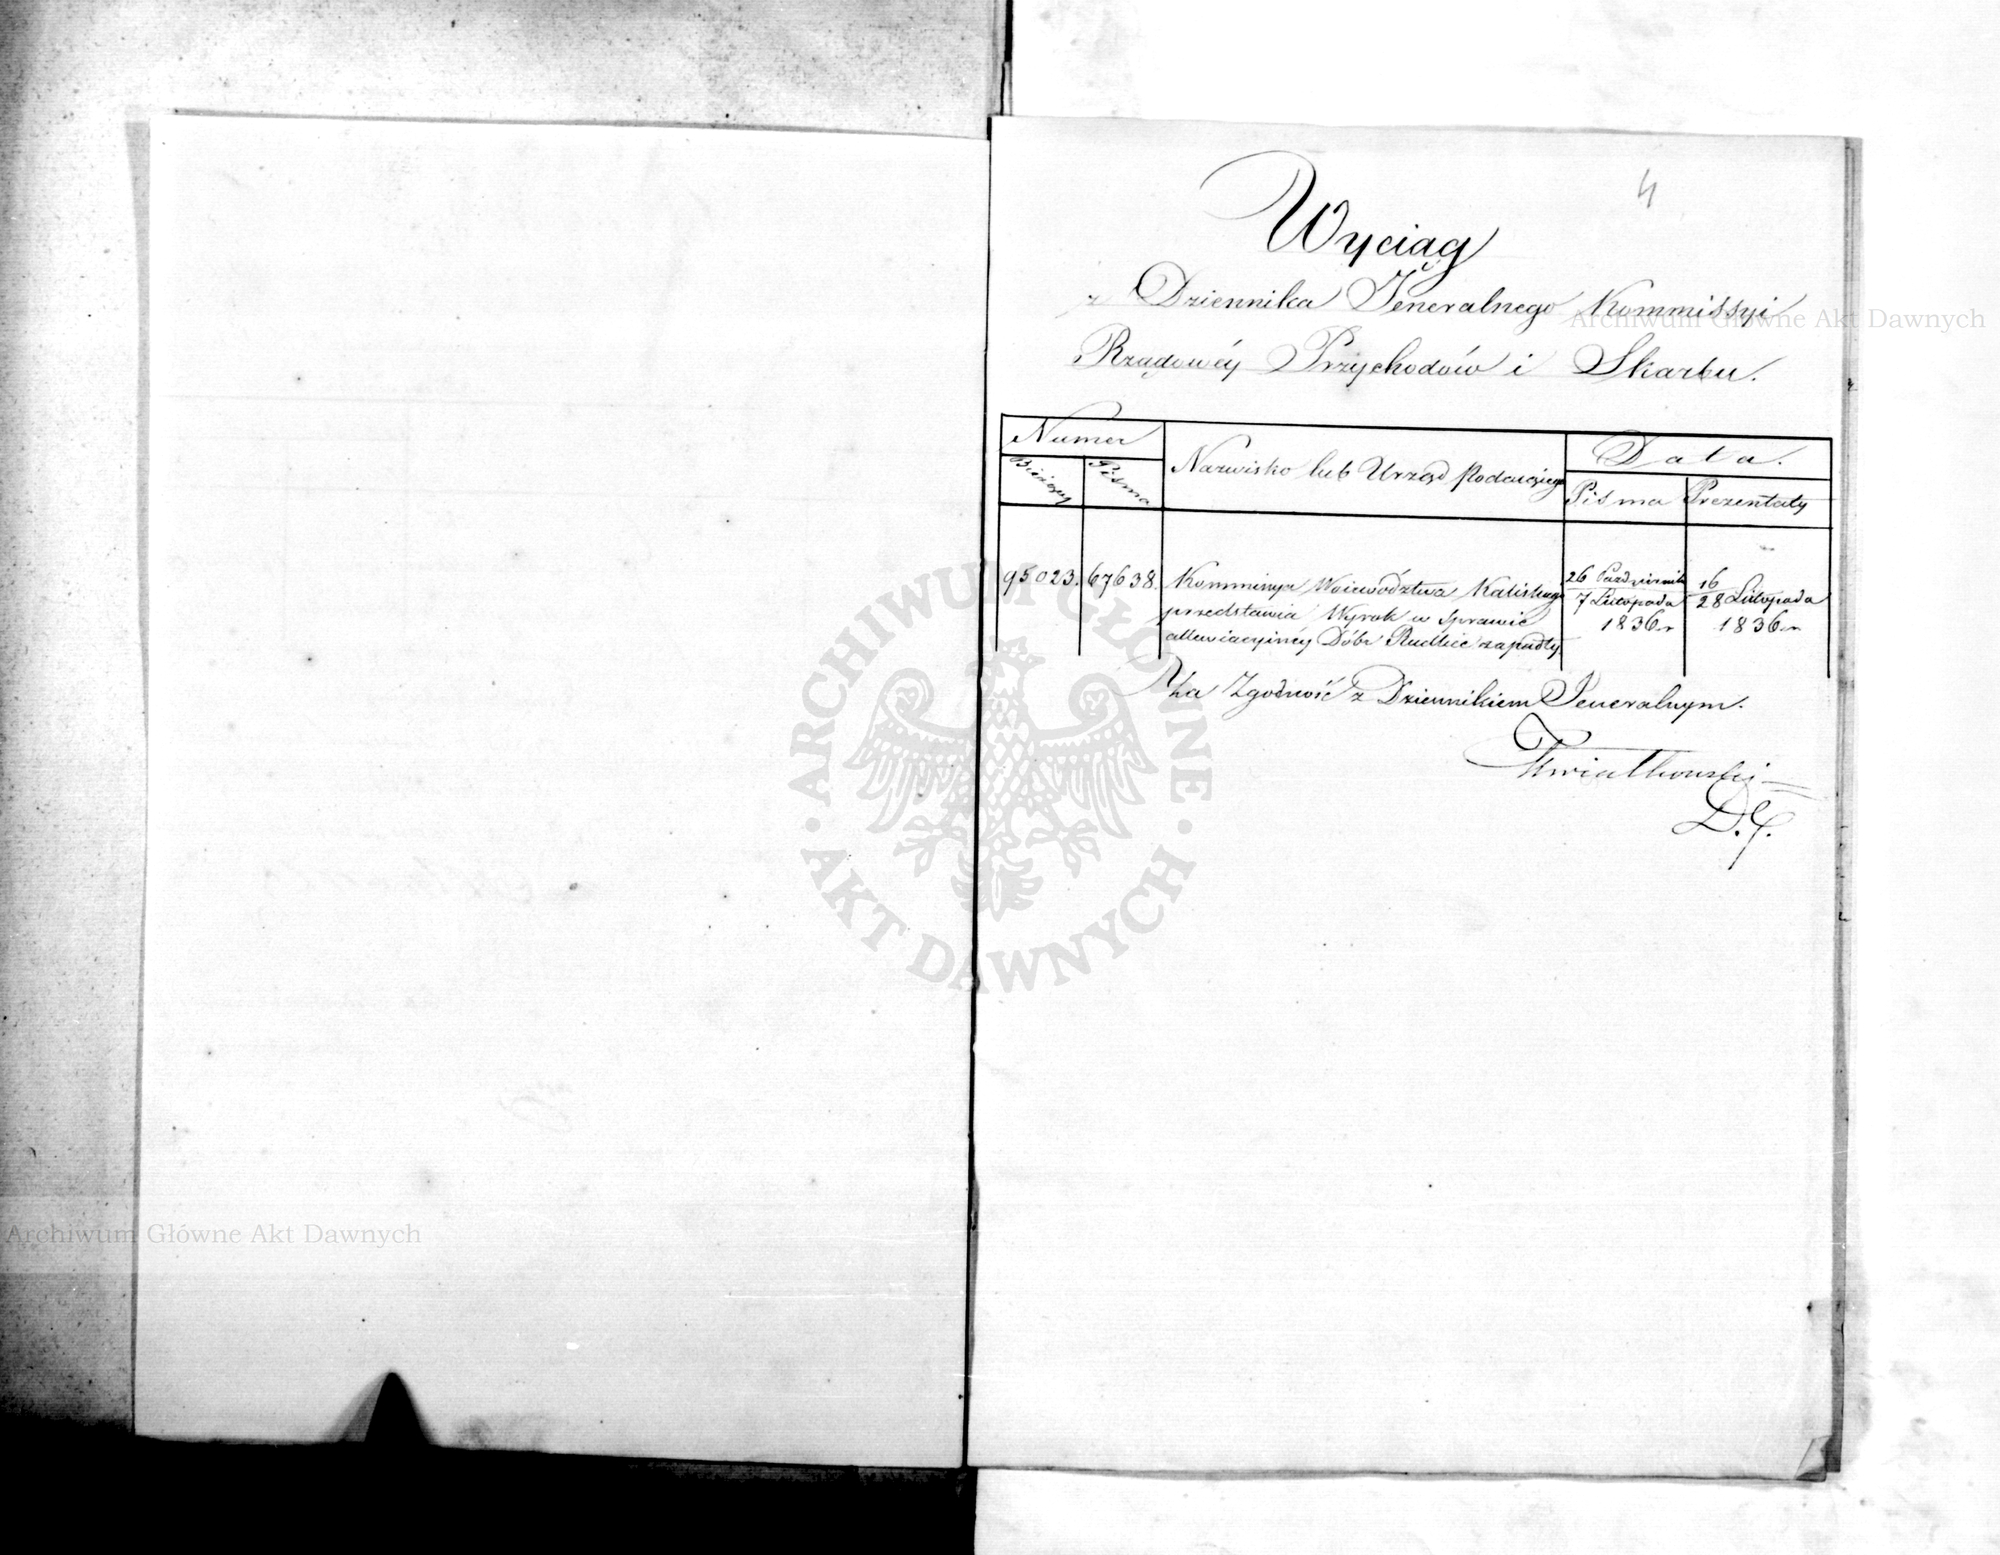 4
Wyciąg
z Dziennika Jeneralnego Kommissyi
Rządowéy Przychodów i Skarbu.
Numer
Bieżący
Pisma
Nazwisko lub Urząd Podaiącego
Data.
Pisma
Prezentaty
95023.
67638.
Kommissya Woiewództwa Kaliskiego
przedstawia Wyrok w Sprawie
allewiacyinéy Dóbr Rudlice zapadły.
26 Październik
7 Listopada
1836 r
16
28 Listopada
1836 r
Za Zgodność z Dziennikiem Jeneralnym.
Kwiatkowski
D.J.
Archiwum Główne Akt Dawnych
Archiwum Główne Akt Dawnych
ARCHIWUM GŁÓWNE
AKT DAWNYCH